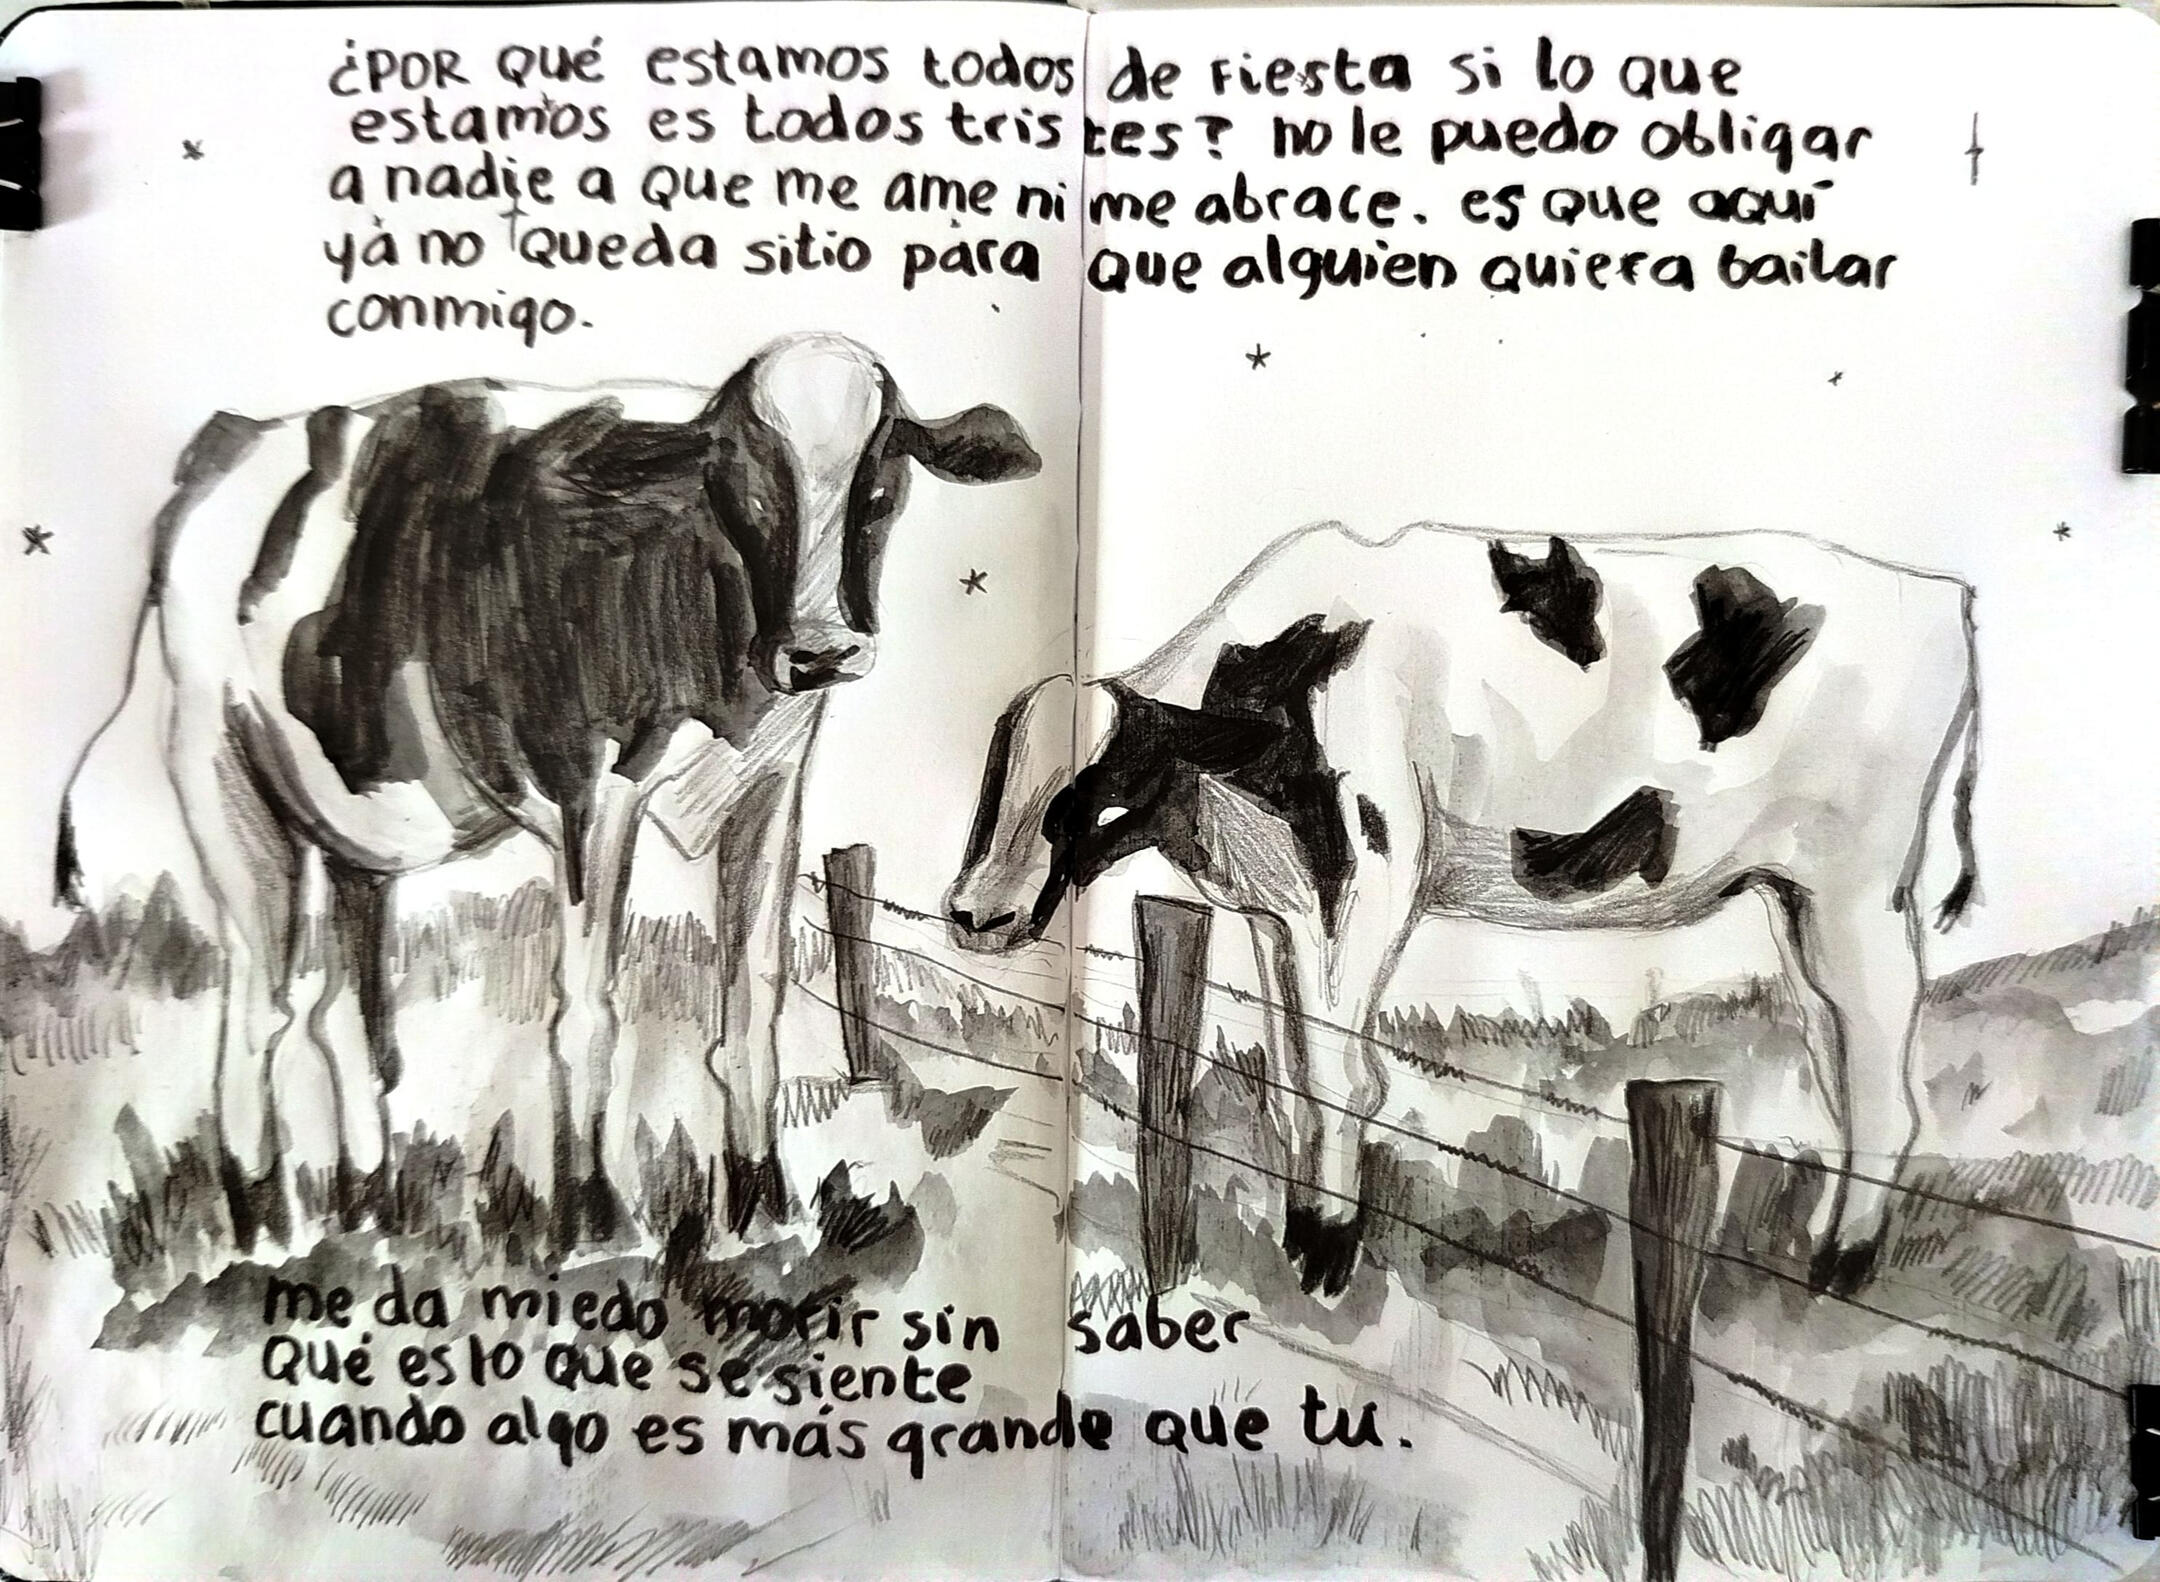 ¿POR QUÉ estamos todos de fiesta si lo que
estamos es todos tristes? no le puedo obligar
a nadie a que me ame ni me abrace. es que aquí
ya no queda sitio para que alguien quiera bailar
conmigo.
me da miedo morir sin saber
Qué es lo que se siente
cuando algo es más grande que tu.